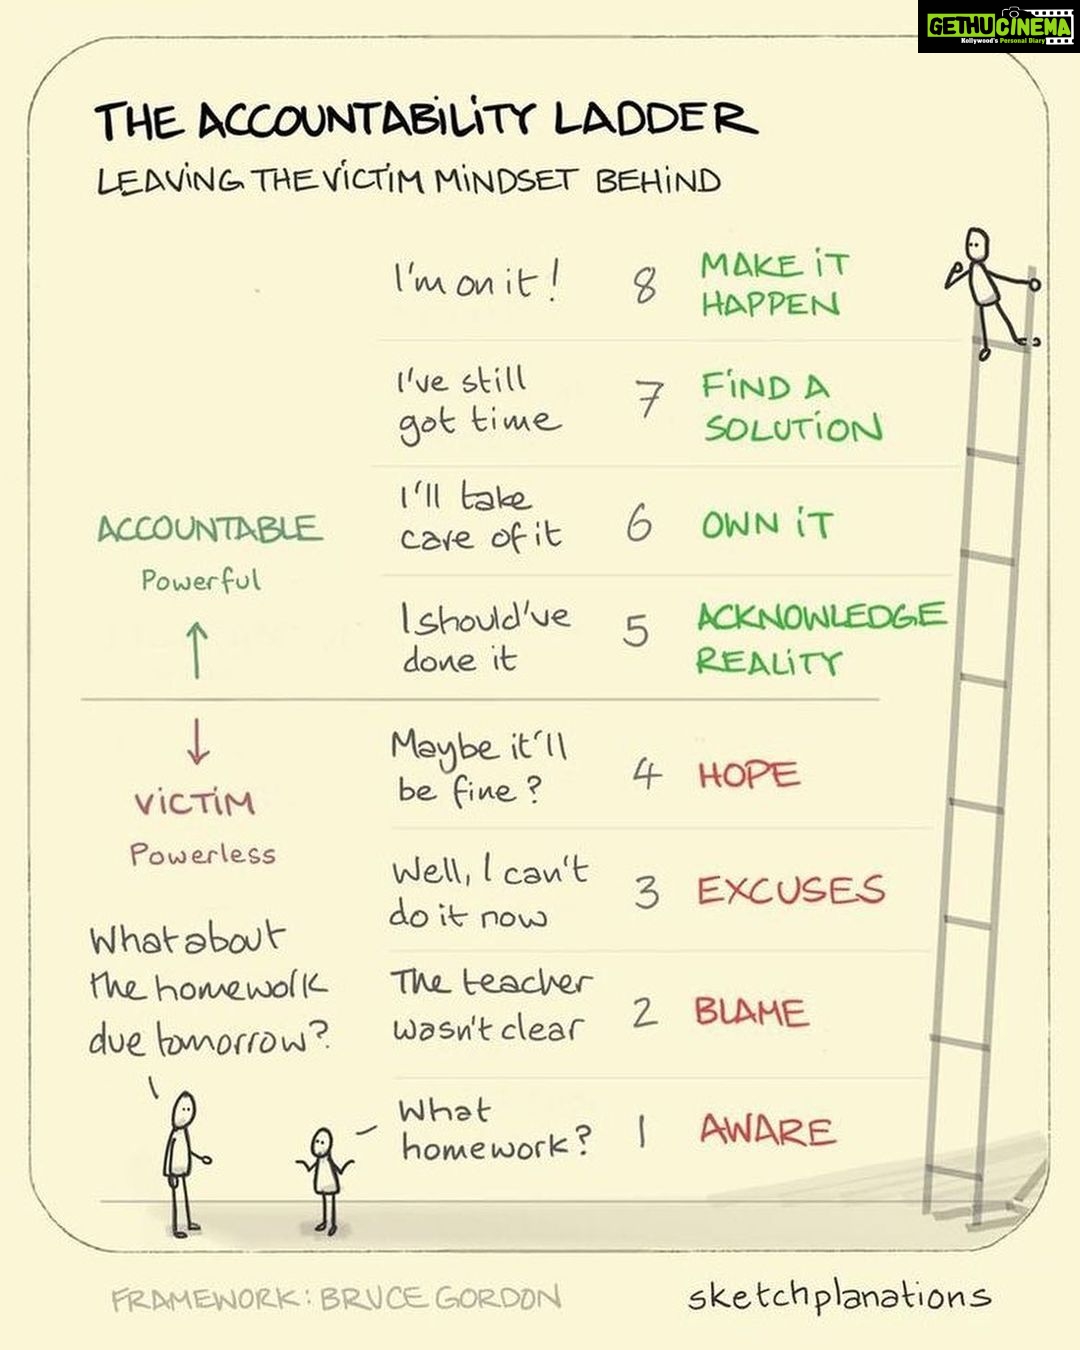 GETHUCINEMA
Kollywood's Personal Diary
THE ACCOUNTABILITY LADDER
LEAVING THE VICTIM MINDSET BEHIND
I'm on it! 8 MAKE IT
HAPPEN
I've still
got time 7 FIND A
SOLUTION
I'll take
care of it 6 OWN IT
ACCOUNTABLE
Powerful
I should've
done it 5 ACKNOWLEDGE
REALITY
Maybe it'll
be fine? 4 HOPE
VICTIM
Powerless
Well, I can't
do it now 3 EXCUSES
What about
the homework
due tomorrow?
The teacher
wasn't clear 2 BLAME
What
homework? 1 AWARE
FRAMEWORK: BRUCE GORDON
sketchplanations